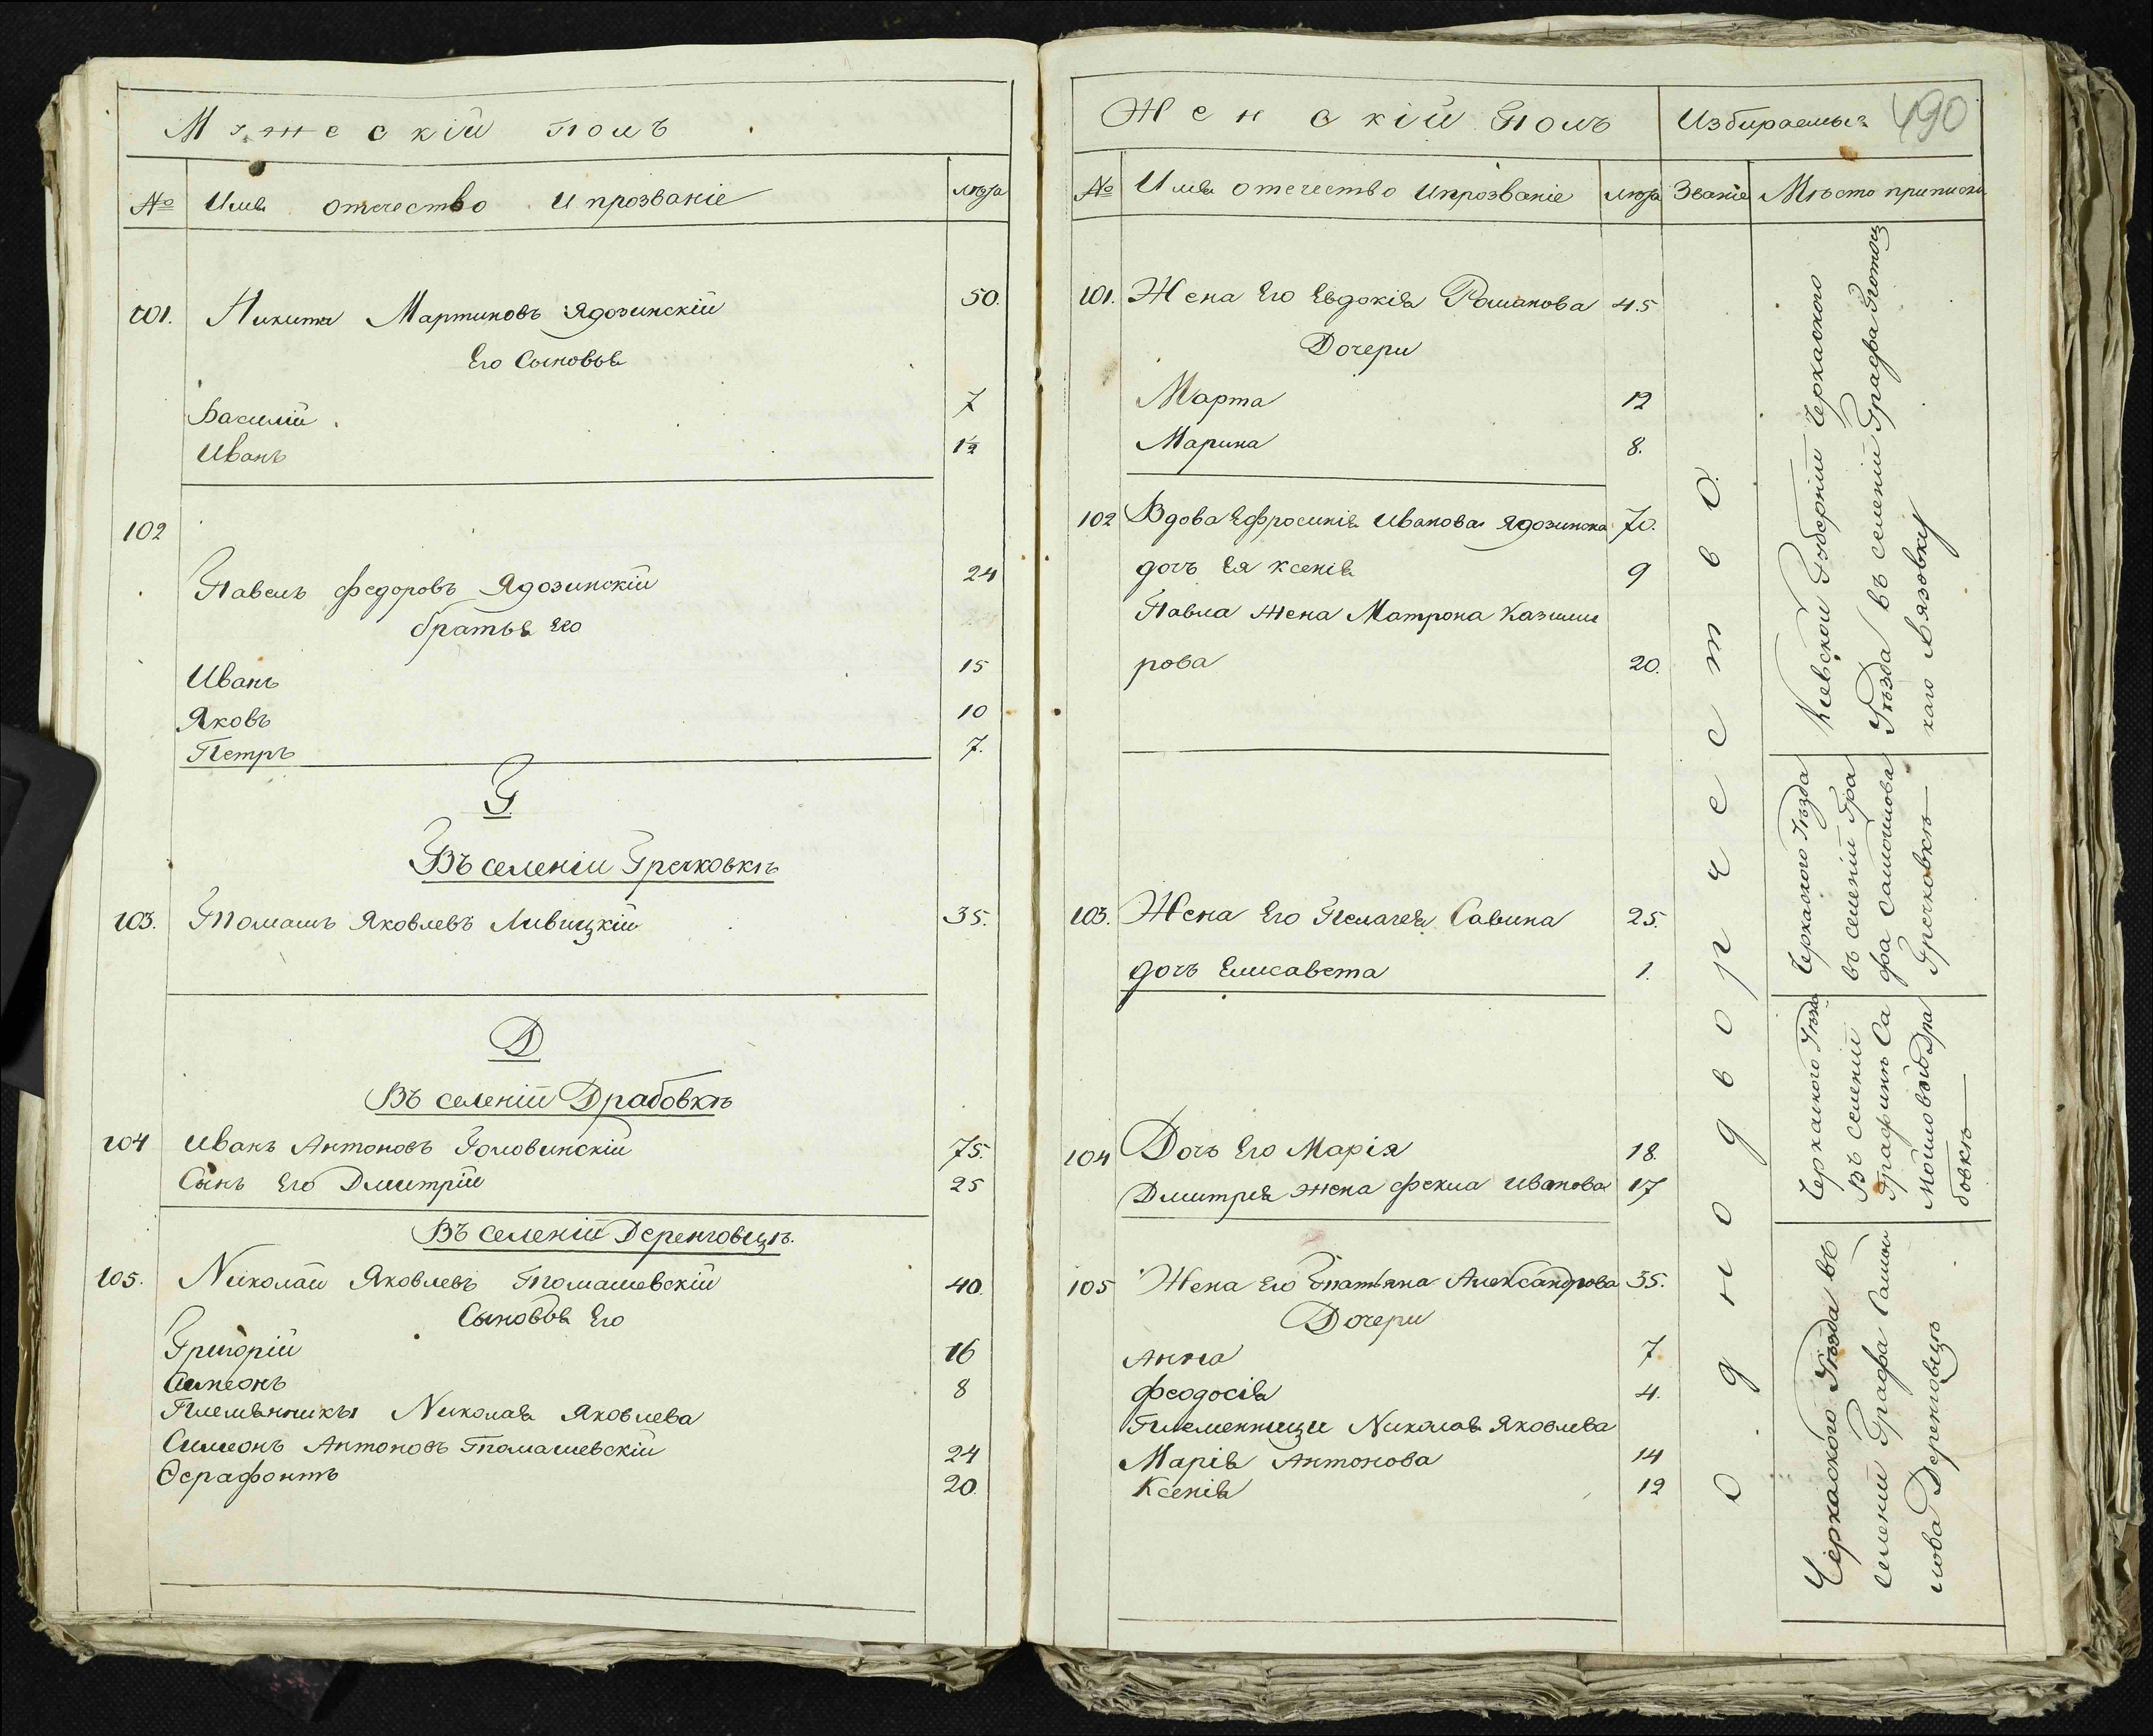 Мужескій полъ
№ Имя отечество и прозваніе лѣта
101. Никита Мартиновъ Ядозинскій 50.
Его Сыновья
Василій 7
Иванъ 1½
102
Павелъ Федоровъ Ядозинскій 24
братья Его
Иванъ 15
Яковъ 10
Петръ 7.
Г.
Въ селеніи Гречковкѣ
103. Томашъ Яковлевъ Ливицкій 35.
Д
Въ селеніи Драбовкѣ
104 Иванъ Антоновъ Головинскій 75.
Сынъ Его Дмитрій 25
Въ селеніи Деренговцѣ.
105. Николай Яковлевъ Томашевскій 40.
Сыновья Его
Григорій 16
Симеонъ 8
Племянники Николая Яковлева
Симеонъ Антоновъ Томашевскій 24
Ѳерафонтъ 20.
Женскій Полъ Избираемыя 490
№ Имя отечество и прозваніе лѣта Званіе Мѣсто приписки
101. Жена Его Евдокія Романова 45
Дочери
Марта 12
Марина 8.
102 Вдова Ефросинія Иванова Ядозинска 70.
дочъ Ея Ксенія 9
Павла жена Матрона Казими
рова 20.
103. Жена Его Пелагея Савина 25.
дочъ Елисавета 1.
104 Дочъ Его Марія 18.
Дмитрія жена Фекла Иванова 17
105 Жена Его Татьяна Александрова 35.
Дочери
Анна 7.
Феодосія 4.
Племенници Николая Яковлева
Марія Антонова 14
Ксенія 12
однодворчество.
Кіевской Губерніи Черкаского
Уѣзда въ селеніи Графа
каго Вязовку
Черкаского Уѣзда
въ селеніи Гра
фа Самойлова
Гречковкѣ
Черкаского Уѣзда
Въ селеніи
Графинѣ Са
мойловой Дра
бовкѣ
Черкаского Уѣзда въ
селеніи Графа Самой
лова Деренговцѣ